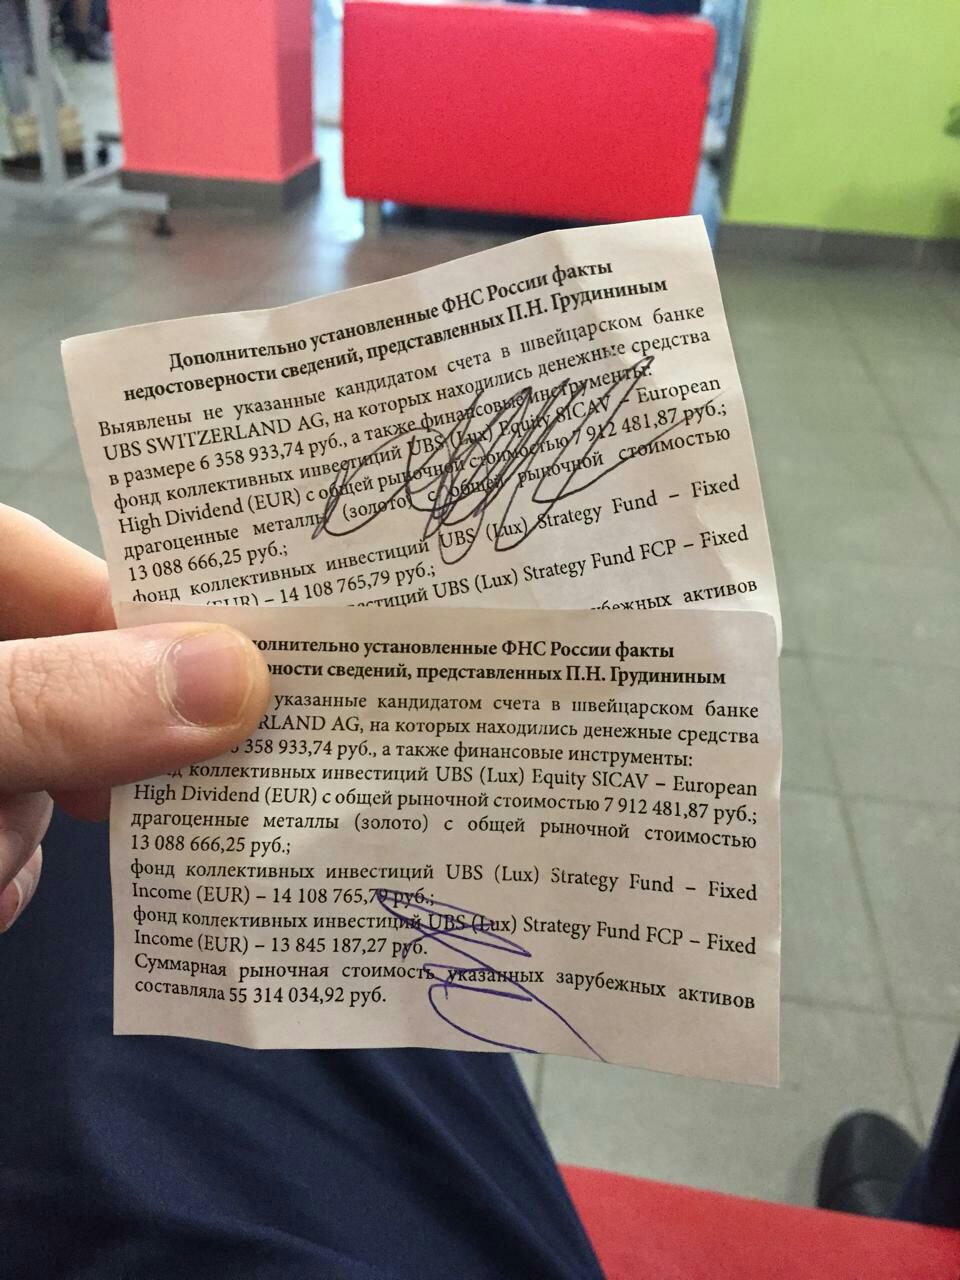 Дополнительно установленные ФНС России факты
недостоверности сведений, представленных П.Н. Грудининым
Выявлены не указанные кандидатом счета в швейцарском банке
UBS SWITZERLAND AG, на которых находились денежные средства
в размере 6 358 933,74 руб., а также финансовые инструменты:
фонд коллективных инвестиций UBS (Lux) Equity SICAV – European
High Dividend (EUR) с общей рыночной стоимостью 7 912 481,87 руб.;
драгоценные металлы (золото) с общей рыночной стоимостью
13 088 666,25 руб.;
фонд коллективных инвестиций UBS (Lux) Strategy Fund – Fixed
(EUR) – 14 108 765,79 руб.;
естиций UBS (Lux) Strategy Fund FCP – Fixed
рубежных активов
полнительно установленные ФНС России факты
рности сведений, представленных П.Н. Грудининым
указанные кандидатом счета в швейцарском банке
RLAND AG, на которых находились денежные средства
358 933,74 руб., а также финансовые инструменты:
коллективных инвестиций UBS (Lux) Equity SICAV – European
High Dividend (EUR) с общей рыночной стоимостью 7 912 481,87 руб.;
драгоценные металлы (золото) с общей рыночной стоимостью
13 088 666,25 руб.;
фонд коллективных инвестиций UBS (Lux) Strategy Fund – Fixed
Income (EUR) – 14 108 765,79 руб.;
фонд коллективных инвестиций UBS (Lux) Strategy Fund FCP – Fixed
Income (EUR) – 13 845 187,27 руб.
Суммарная рыночная стоимость указанных зарубежных активов
составляла 55 314 034,92 руб.